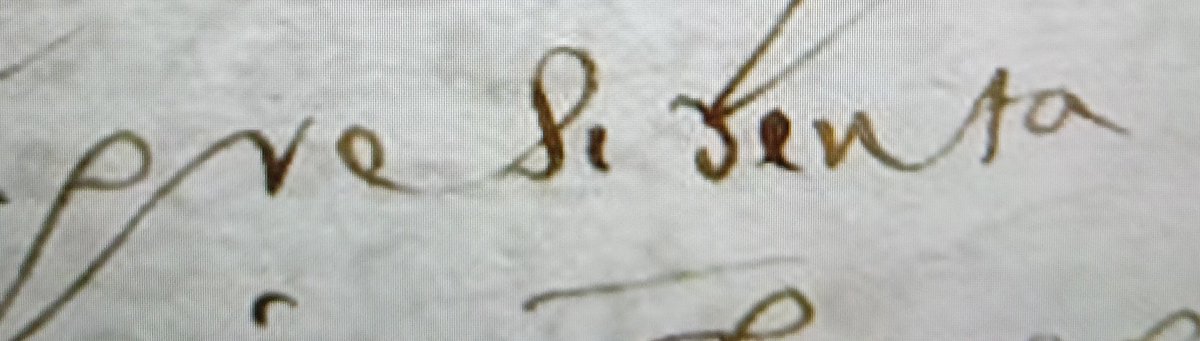 pre Si denta